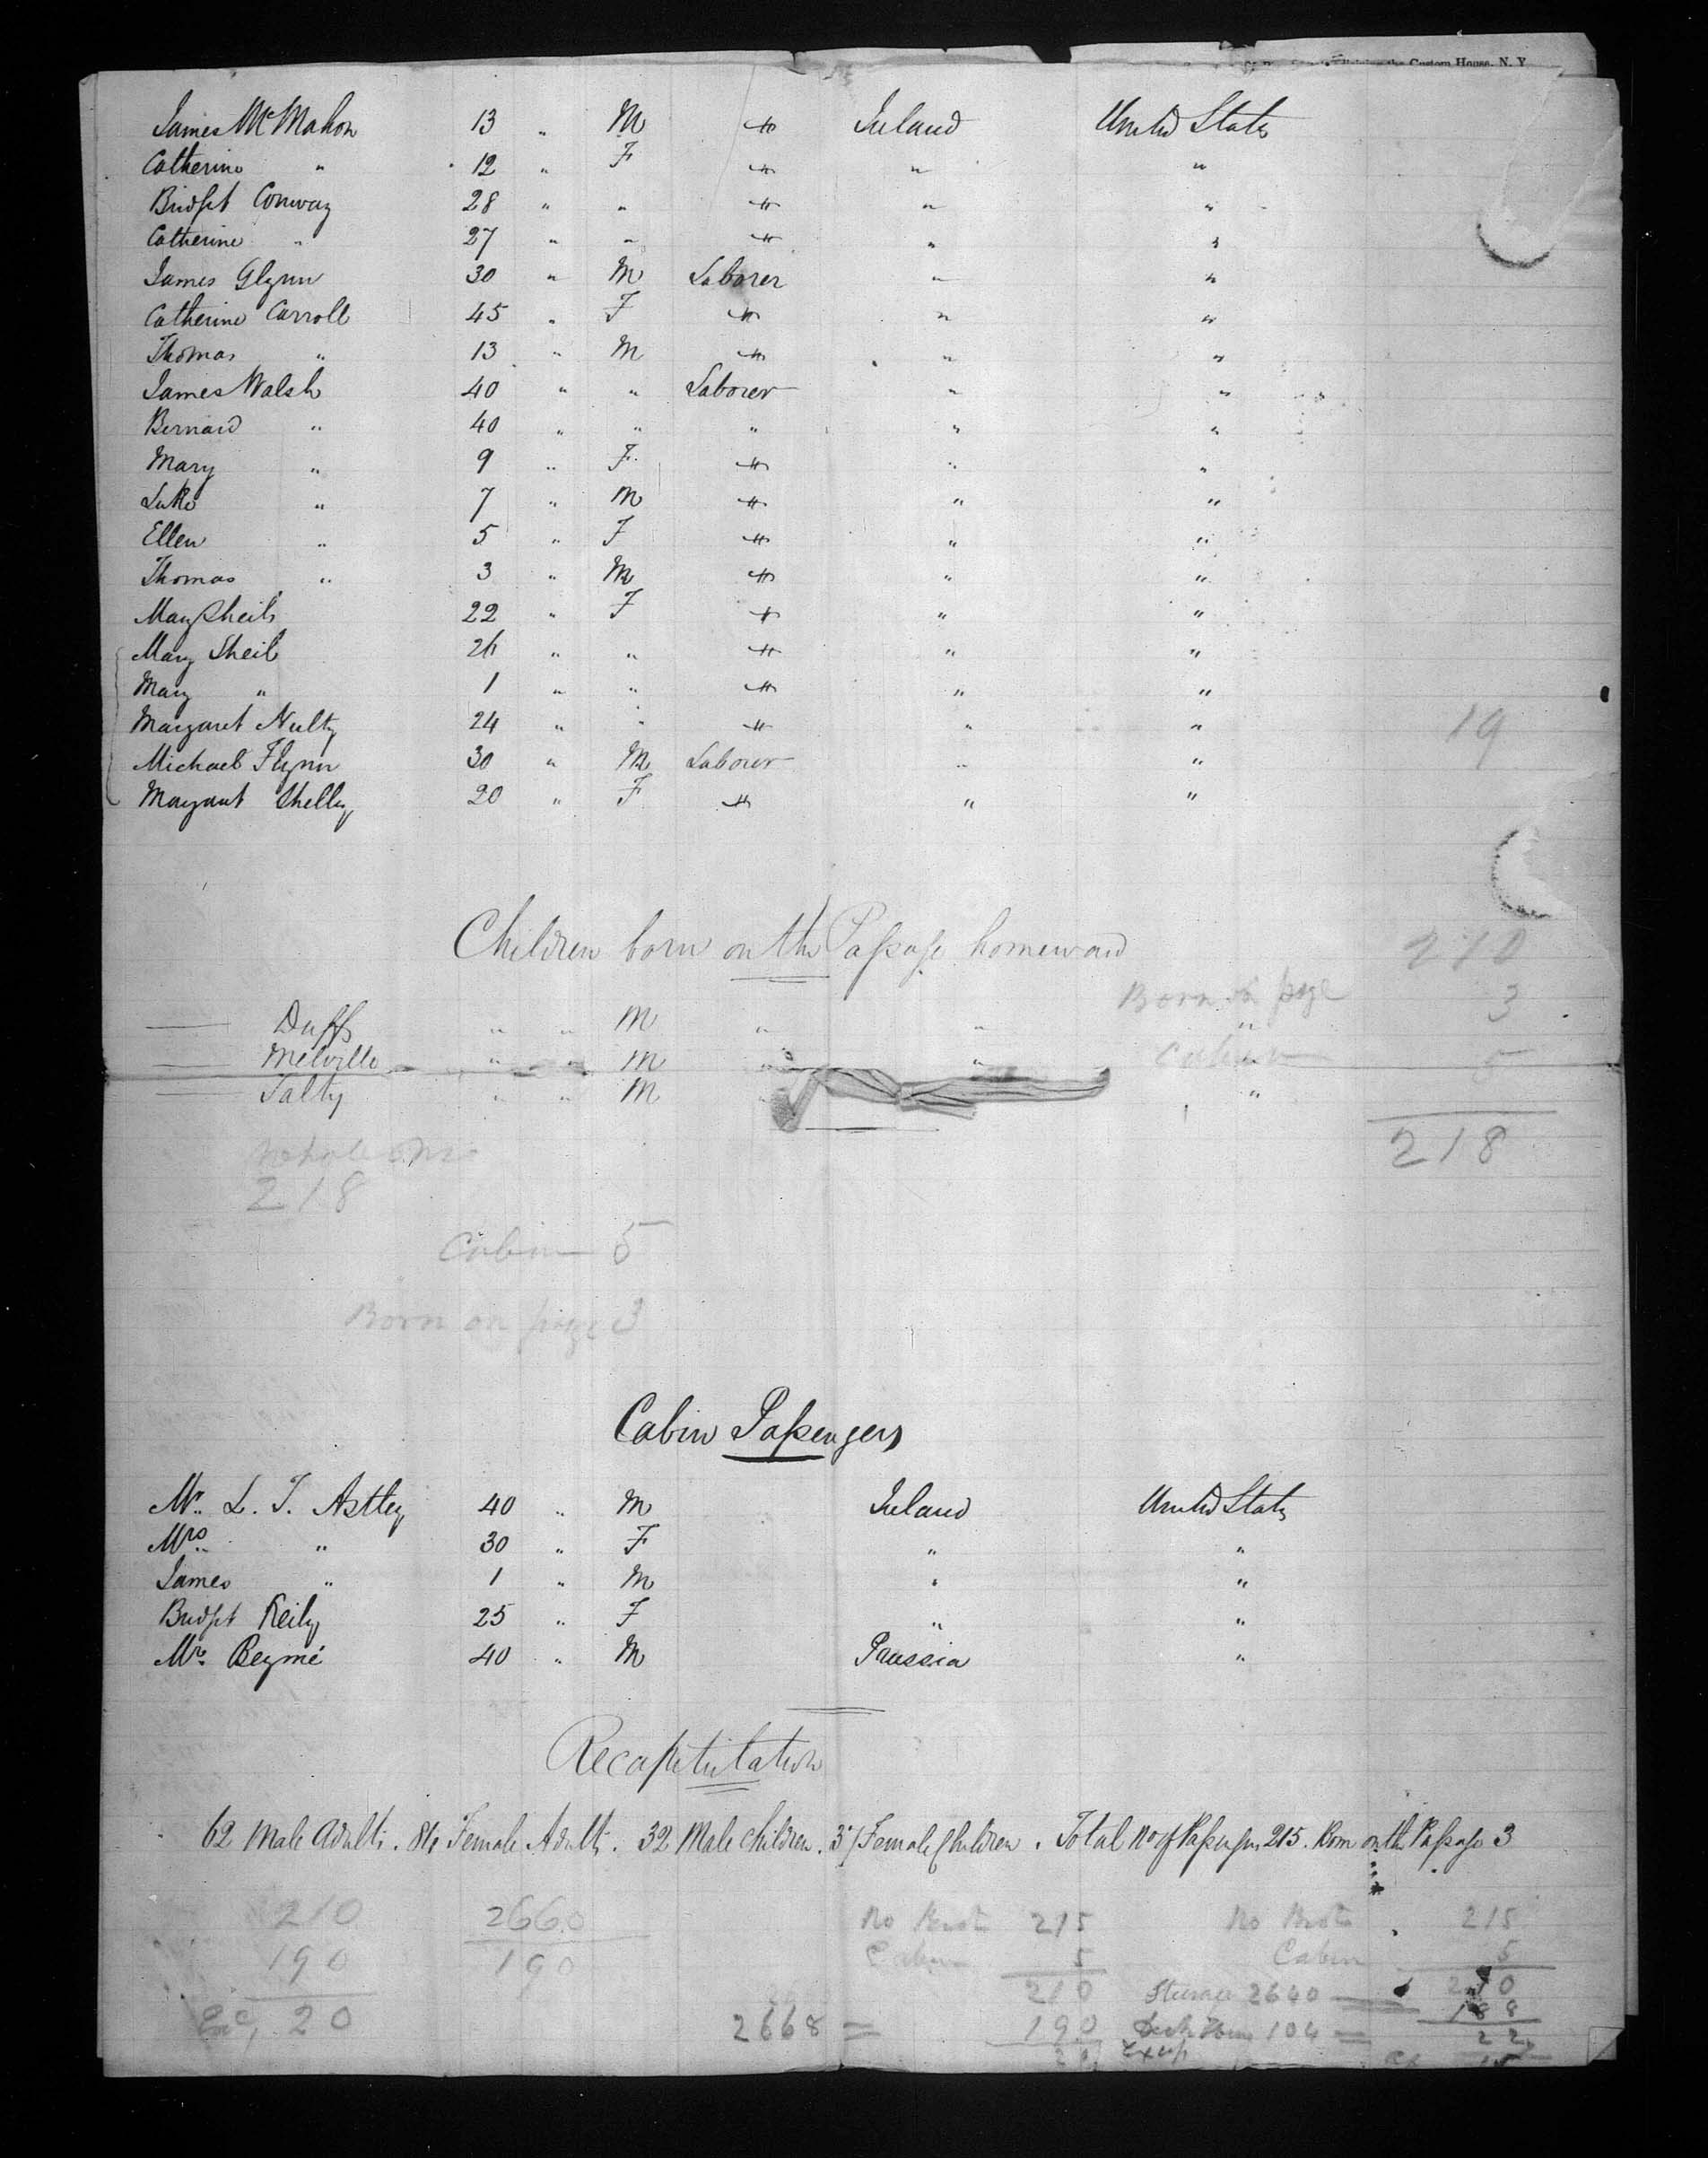 Custom House, N. Y.
James McMahon 13 " M # Ireland United States
Catherine " 12 " F # " "
Bridget Conway 28 " " # " "
Catherine " 27 " " # " "
James Glynn 30 " M Laborer " "
Catherine Carroll 45 " F # " "
Thomas " 13 " M # " "
James Walsh 40 " " Laborer " "
Bernard " 40 " " " " "
Mary " 9 " F # " "
Luke " 7 " M # " "
Ellen " 5 " F # " "
Thomas " 3 " M # " "
Mary Sheils 22 " F # " "
Mary Sheil 26 " " # " "
Mary " 1 " " # " "
Margaret Nulty 24 " " # " " 19
Michael Flynn 30 " M Laborer " "
Margaret Shelly 20 " F # " "
Children born on the Passage homeward 210
Born on psge 3
—— Duffy " " M " " "
—— Melville " " M " " " Cabin 5
—— Talty " " M " "
218
Whole No
218
Cabin 5
Born on psge 3
Cabin Passengers
Mr. L. T. Astley 40 " M Ireland United States
Mrs. " 30 " F " "
James " 1 " M " "
Bridget Reily 25 " F " "
Mr. Beymé 40 " M Prussia "
Recapitulation
62 Male Adults. 84 Female Adults. 32 Male Children. 37 Female Children. Total No of Passengers 215. Born on the Passage 3
210 2660 No 215 No 215
190 190 Cabin 5 Cabin 5
20 210 Steerage 2640 210
2668 = 190 104 = 188
22